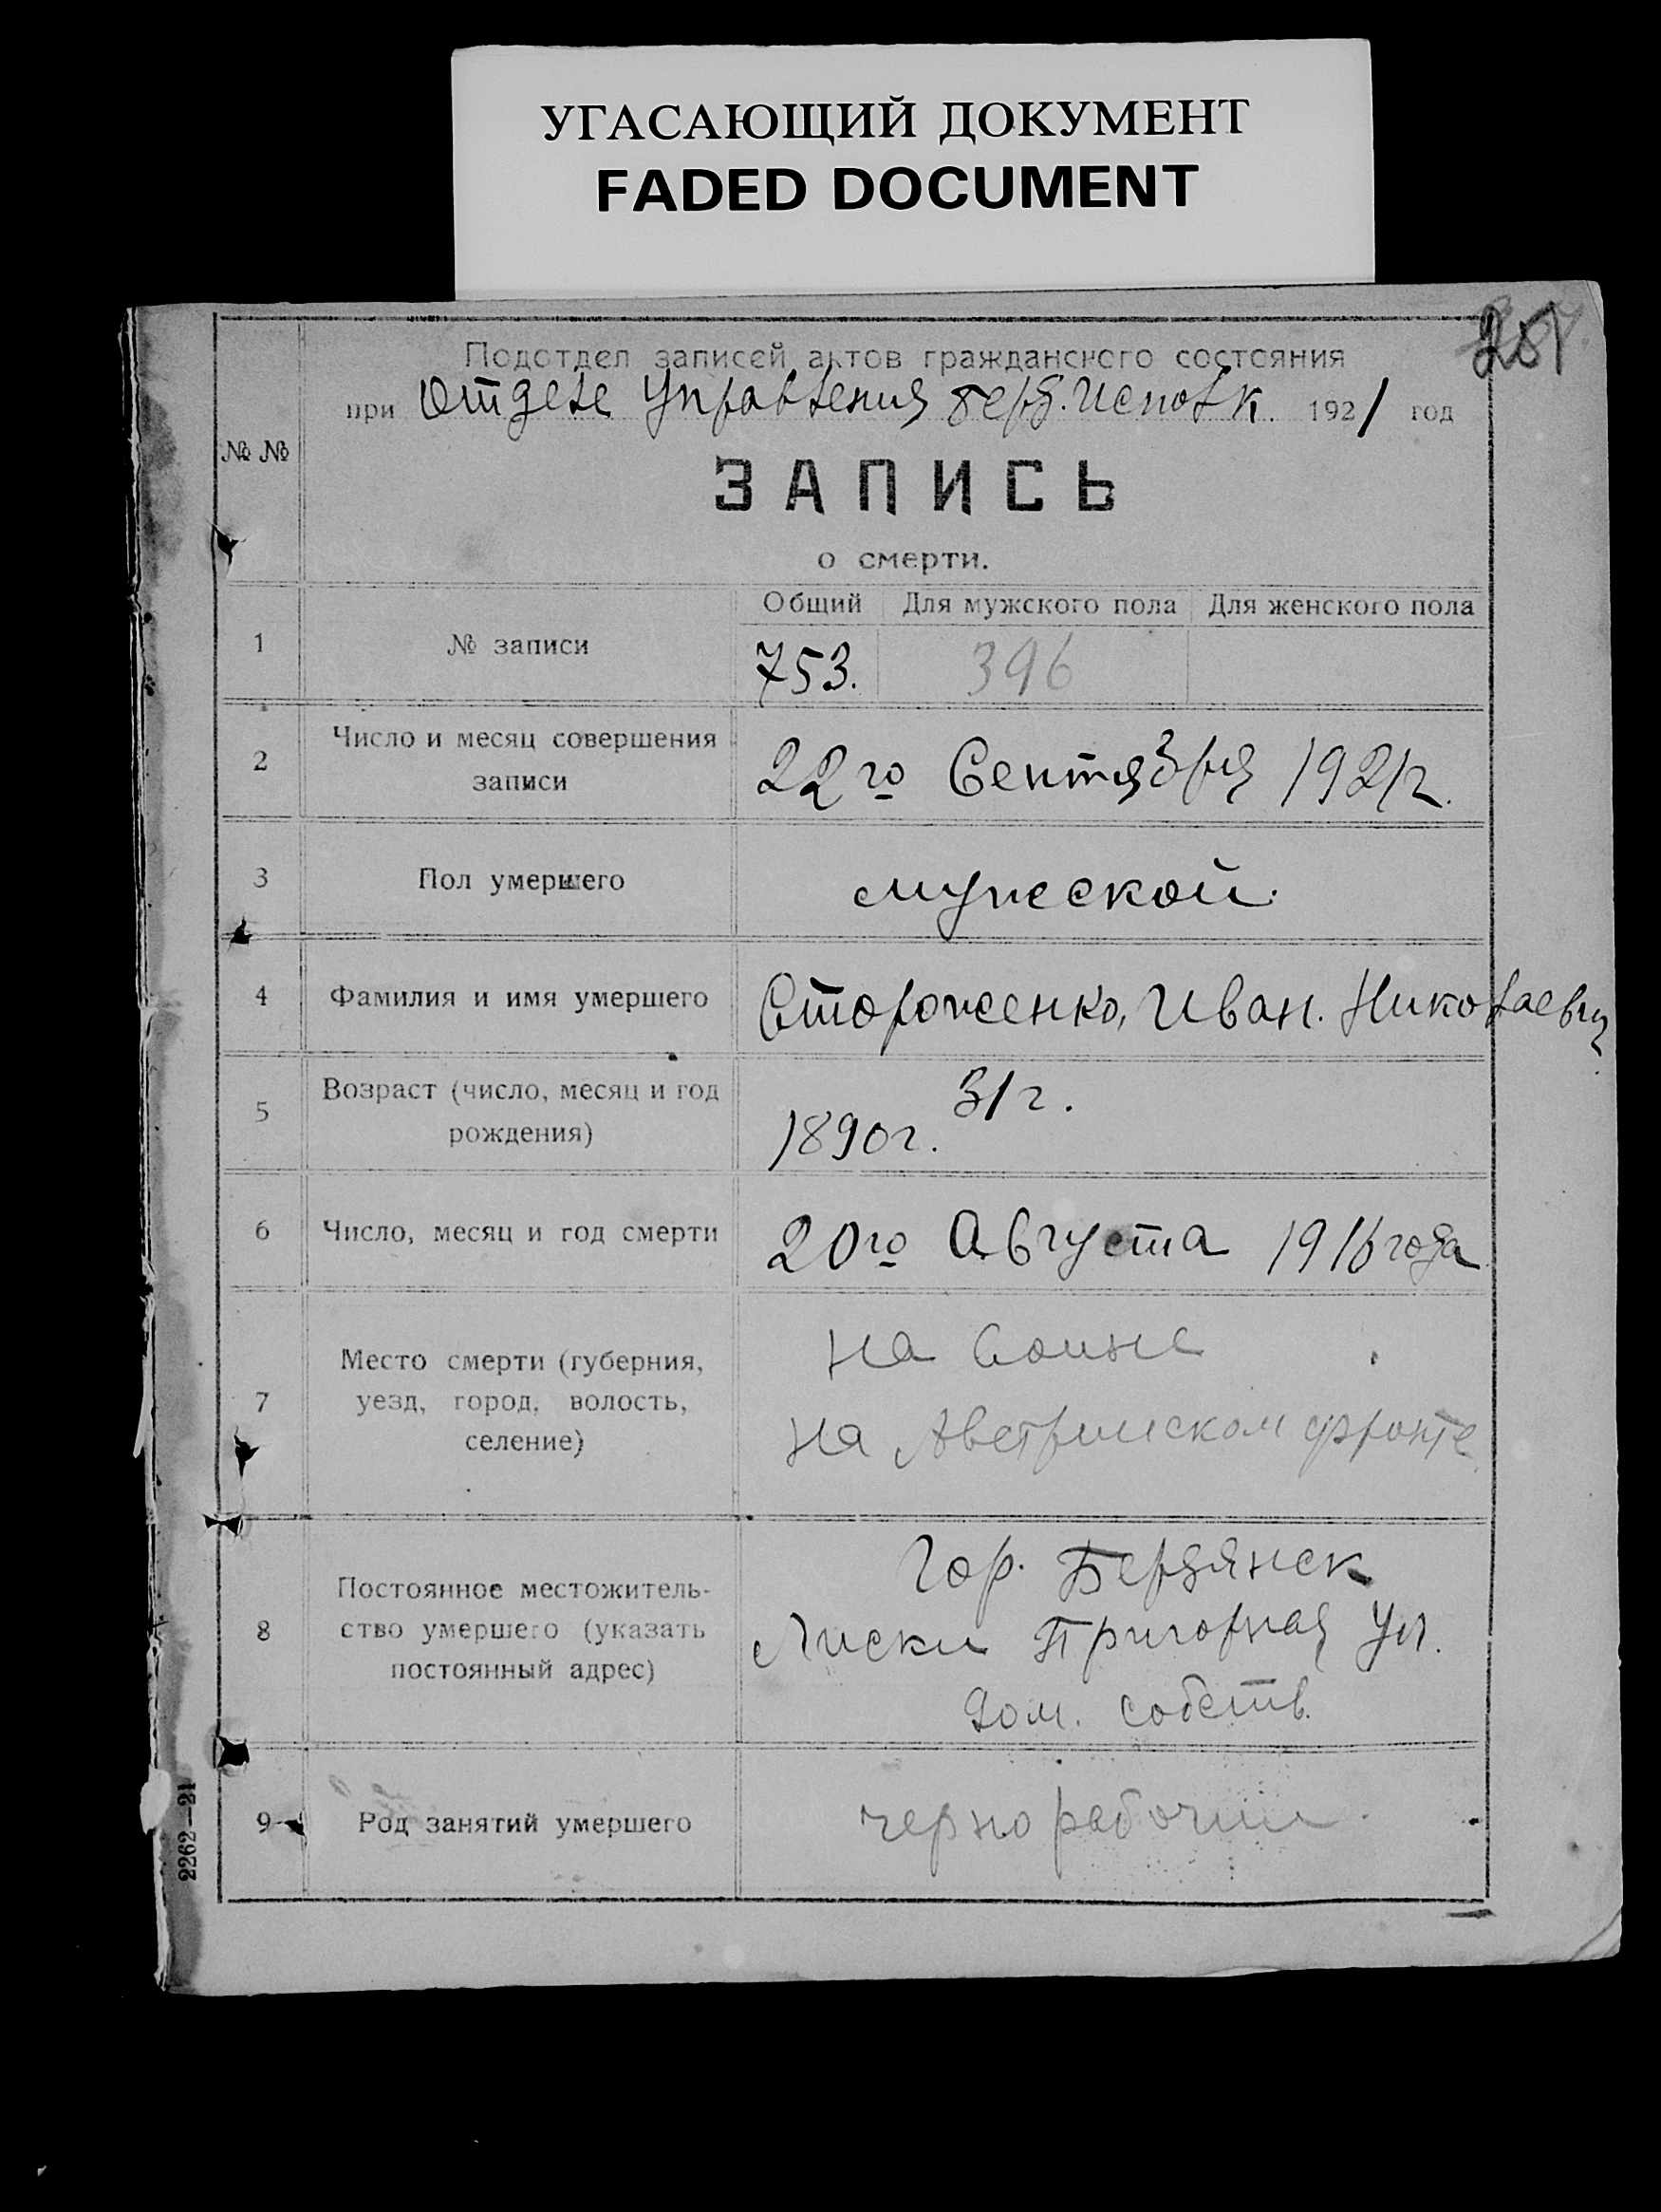 УГАСАЮЩИЙ ДОКУМЕНТ
FADED DOCUMENT
Подотдел записей актов гражданского состояния
при Отделе Управления Берд. Исполк. 1921 год
№ №
ЗАПИСЬ
о смерти.
1 № записи Общий Для мужского пола Для женского пола
753. 396
2 Число и месяц совершения
записи
22го Сентября 1921г.
3 Пол умершего мужеской.
4 Фамилия и имя умершего Стороженко, Иван. Николаевич
5 Возраст (число, месяц и год
рождения)
31 г.
1890 г.
6 Число, месяц и год смерти 20го Августа 1916 года
7 Место смерти (губерния,
уезд, город, волость,
селение)
на воине
на Австрииском фронте
8 Постоянное местожитель-
ство умершего (указать
постоянный адрес)
Гор. Бердянск
Лиски Пригорная ул.
дом. собств.
9 Род занятий умершего чернорабочии
2262—21